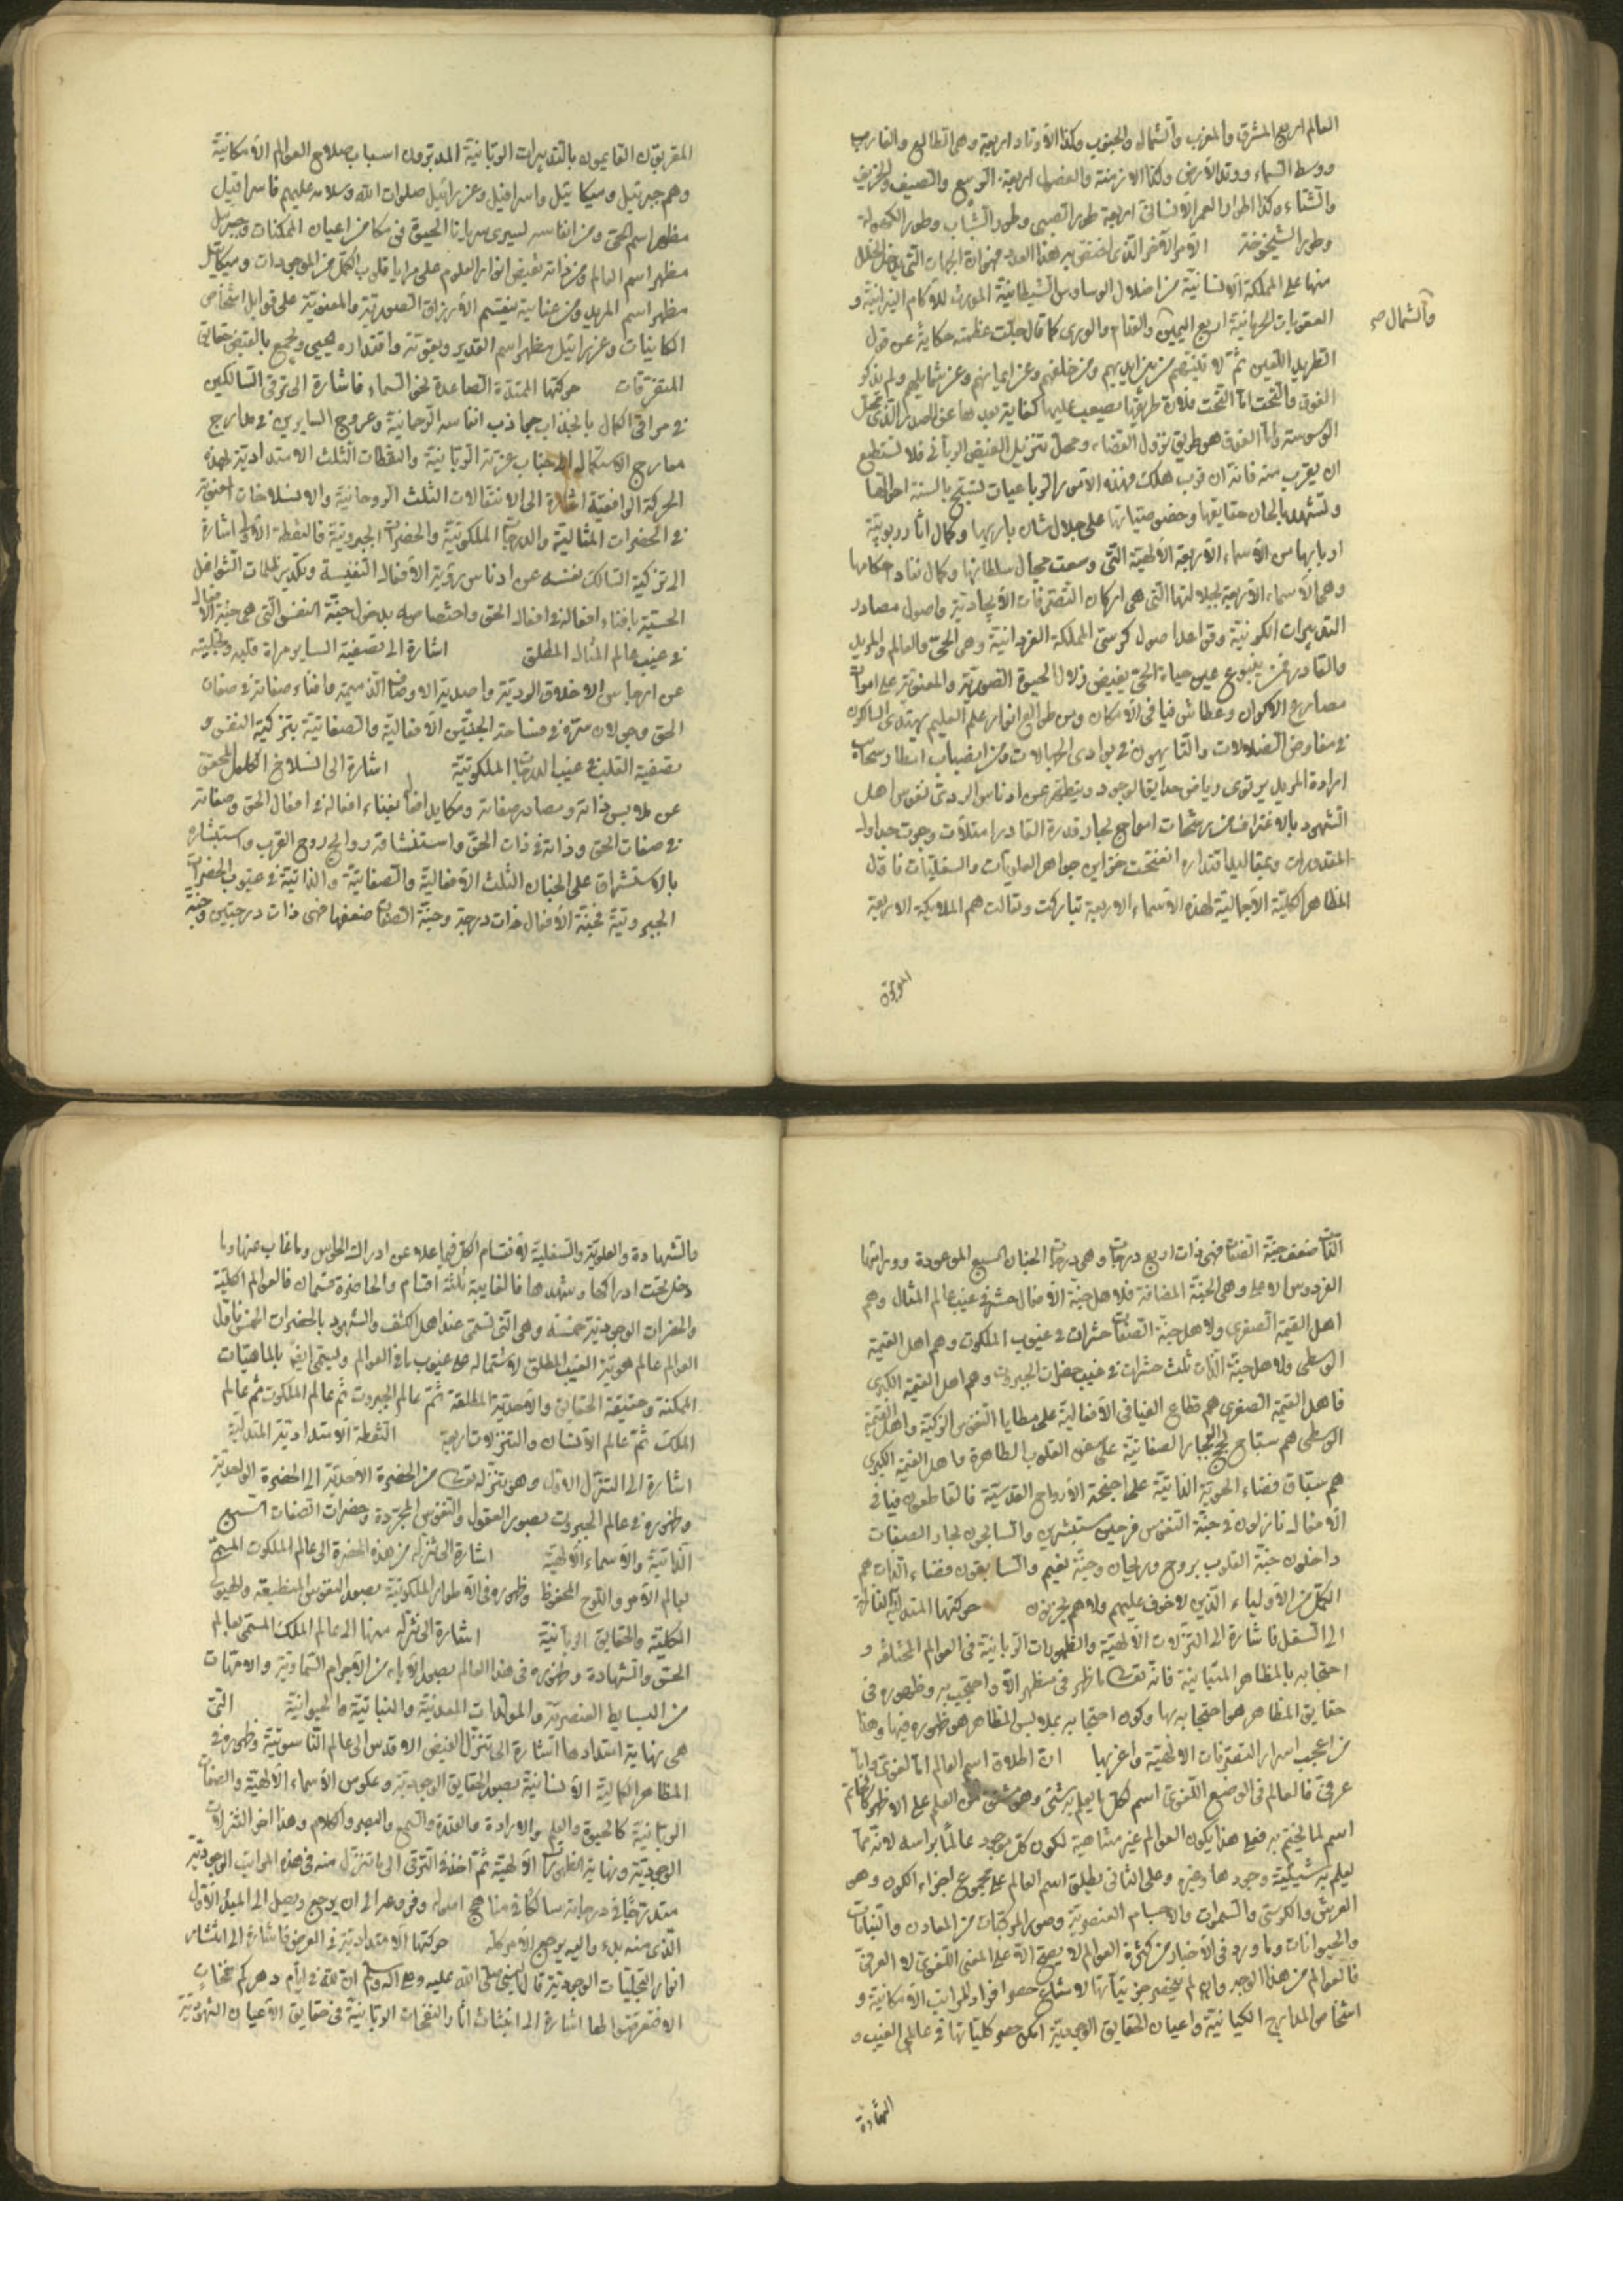 العالم اربع المشرق والمغرب والشمال والجنوب وكذا الاوتاد اربعة وهي الطالع والغارب
ووسط السماء ووتد الارض وكذا الازمنة والفصول اربعة الربيع والصيف والخريف
والشتاء وكذا اطوار العمر الانساني اربعة طور الصبى وطور الشباب وطور الكهولة
وطور الشيخوخة الامر الآخر الذي اختص بهذا العدد فهو ان الجهات التي يدخل الخلل
منها على المملكة الانسانية من اضلال الوساوس الشيطانية المورث للآلام النيرانية و
العقوبات الجرمانية اربع اليمين والقدام والورى كما قال جلت عظمته حكاية عن قول
والشمال صح
الطريد اللعين ثم لآتينهم من بين ايديهم ومن خلفهم وعن ايمانهم وعن شمائلهم ولم يذكر
الفوق والتحت اما التحت فلان طريقها يصعب عليها لغاية بعدها عن الصدر الذي محل
الوسوسة واما الفوق هو طريق نزول القضاء ومحل تنزيل الفيض الرباني فلا تستطيع
ان يقرب منه فانه ان قرب هلك فهذه الامور الرباعيات تسبح بالسنة احوالها
وتشهد بالحان حقايقها على جلال شان باريها وكمال اثار ربوبية
اربابها من الاسماء الاربعة الالهية التي وسعت مجال سلطانها وكمال نفاد احكامها
وهي الاسماء الاربعة التي هي اركان التصرفات الايجادية واصول مصادر
التدبيرات الكونية وقواعد اصول كرسي المملكة الفردانية وهي الحي والعالم والمريد
والقادر فمن ينبوع عين حياة الحي يفيض زلال الحيوة الصورية والمعنوية على اموات
مصارع الاكوان وعطاش فيافي الامكان ومن طوالع انوار علم العليم يهتدي السالكون
في مفاوض الضلالات والتايهون في بوادي الجهالات ومن انصباب امطار سحاب
ارادة المريد يرتوى رياض حدايق الوجود ويتطهر عن ادناس الردى نفوس اهل
الشهود بالاغتراف من رشحات امواج بحار قدرة القادر امتلأت وجرت جداول
المقدورات وبمقاليد اقتداره انفتحت خزاين جواهر العلويات والسفليات فاول
المظاهر الكلية الاجمالية لهذه الاسماء الاربعة تباركت وتعالت هم الملايكة الاربعة
المقربون
المقربون القايمون بالتدبيرات الربانية المدبرون اسباب صلاح العوالم الامكانية
وهم جبرئيل وميكائيل واسرافيل وعزرائيل صلوات الله وسلامه عليهم فاسرافيل
مظهر اسم الحي ومن انفاسه يسرى سرياينا الحيوة في اعيان الممكنات وجبريل
مظهر اسم العالم ومن ذاته تفيض انوار العلوم على مرايا قلوب الكمل من الموجودات وميكائيل
مظهر اسم المريد ومن عنايته يقتسم الارزاق الصورية والمعنوية على قوابل اشخاص
الكاينات وعزرائيل مظهر اسم القدير وبقوته واقتداره يحيى ويجمع بالقبض حقايق
المتفرقات حركتها الممتدة الصاعدة نحو السماء فاشارة الى ترقي السالكين
في مراقي الكمال بانجذاب جواذب انفاسه الرحمانية وعروج السايرين في مدارج
معارج الاستكمال الى جناب عزته الربانية والنقطات الثلث الامتدادية لهذه
الحركة الرافعية اشارة الى الانتقالات الثلث الروحانية والانسلاخات المعنوية
في الحضرات المثالية والدرجات الملكوتية والحضرات الجبروتية فالنقطة الاولى اشارة
الى تزكية السالك نفسه عن ادناس رؤية الافعال النفيسة وتكدير ظلمات الشواغل
الحسية بافناء افعاله في افعال الحق واختصاصه بدخول جنة النفس التي هي جنة الافعال
في غيب عالم المثال المطلق اشارة الى تصفية الساير مرآة قلبه وتجليته
عن ارجاس الاخلاق الردية واصدية الاوصاف الذميمة وافناء صفاته في صفات
الحق وجولان سره في مساحة الجنتين الافعالية والصفاتية بتزكية النفس و
تصفية القلب في غيب الدرجات الملكوتية اشارة الى انسلاخ الكامل المحقق
عن ملابس ذاته ومصادر صفاته بفناء افعاله في افعال الحق وصفاته
في صفات الحق وذاته في ذات الحق واستنشاقه روايح روح القرب واستبشاره
بالاستشراق على الجنان الثلث الافعالية والصفاتية والذاتية في غيوب الحضرات
الجبروتية فجنة الافعال ذات درجة وجنة الصفات ضعفها فهى ذات درجتين وجنة
الذات ضعف جنة الصفات فهى ذات اربع درجات وهى درجات الجنان السبع الموعودة ووراءها
الفردوس الاعلى وهي الجنة المضافة فلاهل جنة الافعال حشر في غيب عالم المثال وهم
اهل القيمة الصغرى ولاهل جنة الصفات حشرات في غيوب الملكوت وهم اهل القيمة
الوسطى ولاهل جنة الذات ثلث حشرات في غيب حضرات الجبروت وهم اهل القيمة الكبرى
فاهل القيمة الصغرى هم قطاع الفيافي الافعالية على مطايا النفوس الزكية واهل القيمة
الوسطى هم سباح لجج البحار الصفاتية على سفن القلوب الطاهرة واهل القيمة الكبرى
هم سباق فضاء الهوية الذاتية على اجنحة الارواح القدسية فالقاطعون فيافي
الافعال نازلون في جنة النفوس فرحين مستبشرين والسابحون بحار الصفات
داخلون جنة القلوب بروح وريحان وجنة نعيم والسابقون فضاء الذات هم
الكمل من الاولياء الذين لا خوف عليهم ولا هم يحزنون حركتها المتدلية النازلة
الى السفل فاشارة الى التنزلات الالهية والظهورات الربانية في العوالم المختلفة و
احتجابه بالمظاهر المتباينة فانه تعالى ما ظهر في مظهر الا واحتجب به وظهوره في
حقايق المظاهر هو احتجابه بها وكون احتجابه بملابس المظاهر هو ظهوره فيها وهذا
من اعجب اسرار التصرفات الالهية واغربها ان اطلاق اسم العالم اما لغوى واما
عرفي فالعالم في الوضع اللغوى اسم لكل ما يعلم به شئ وهو مشتق من العلم على الاظهر كالخاتم
اسم لما يختم به فعلى هذا يكون العوالم غير متناهية لكون كل موجود عالما براسه لانه مما
يعلم به شيئية وجودها وغيره وعلى الثاني يطلق اسم العالم على مجموع اجزاء الكون وهو
العرش والكرسي والسموات والاجسام العنصرية وصور المركبات من المعادن والنباتات
والحيوانات وما ورد في الاخبار من كثرة العوالم لا يصح الا على المعنى اللغوى لا العرفي
فالعوالم من هذا الوجه وان لم ينحصر جزئياتها لامتناع حصر افراد المراتب الامكانية و
اشخاص المدارج الكيانية واعيان الحقايق الوجودية امكن حصر كلياتها في عالمي الغيب و
الشهادة
والشهادة والعلوية والسفلية لانقسام الكل فيما علا عن ادراك الحواس وما غاب عنها وما
دخل تحت ادراكها وشهدها فالغايبة ثلثة اقسام والحاضرة قسمان فالعوالم الكلية
والحضرات الوجودية خمسة وهى التي تسمى عند اهل الكشف والشهود بالحضرات الخمس فاول
العوالم عالم هوية الغيب المطلق لاشتماله على غيوب ما في العوالم وليسمى ايضا بالماهيات
الممكنة وحقيقة الحقايق والاحدية المطلقة ثم عالم الجبروت ثم عالم الملكوت ثم عالم
الملك ثم عالم الانسان والتنزلات اربعة النقطة الامتدادية المتدلية
اشارة الى التنزل الاول وهو تنزله تعالى من الحضرة الاحدية الى الحضرة الواحدية
وظهوره في عالم الجبروت بصور العقول والنفوس المجردة وحضرات الصفات السبع
الذاتية والاسماء الالهية اشارة الى تنزله من هذه الحضرة الى عالم الملكوت المسمى
بعالم الامر واللوح المحفوظ وظهوره في الاطوار الملكوتية بصور النفوس المنطبعة والهيولى
الكلية والحقايق الربانية اشارة الى تنزله منها الى عالم الملك المسمى بعالم
الحس والشهادة وظهوره في هذا العالم بصور الآباء من الاجرام السماوية والامهات
من البسايط العنصرية والمولدات المعدنية والنباتية والحيوانية التي
هى نهاية امتدادها اشارة الى تنزل الفيض الاقدس الى عالم الناسوتية وظهوره في
المظاهر الكمالية الانسانية بصور الحقايق الوجودية وعكوس الاسماء الالهية والصفات
الربانية كالحيوة والعلم والارادة والقدرة والسمع والبصر والكلام وهذا آخر التنزلات
الوجودية ونهاية الظهورات الالهية ثم اخذ في الترقي الى ما تنزل منه في هذه المراتب الوجودية
متدرجا في درجاته سالكا في مناهج اصوله وفروعه الى ان يرجع ويصل الى المبدأ الاول
الذى منه بدء واليه يرجع الامر كله حركتها الامتدادية في العرض فاشارة الى انتشار
انوار التجليات الوجودية قال النبى صلى الله عليه وعلى اله وسلم ان لله في ايام دهركم نفحات
الا فتعرضوا لها اشارة الى انبثاث اثار النفحات الربانية في حقايق الاعيان الشهودية